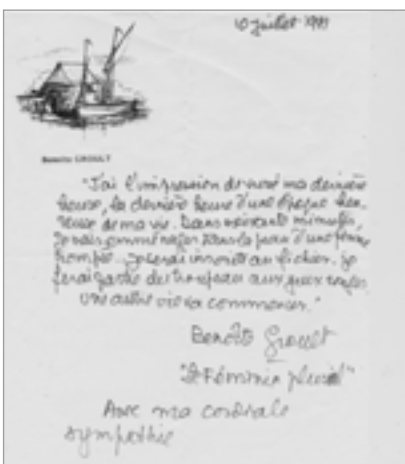 10 juillet 19
Benoîte GROULT
"J'ai l'impression de vivre ma dernière
heure, la dernière heure d'une époque heu-
reuse de ma vie. Dans soixante minutes,
je vais emménager dans la peau d'une femme
trompée. Je serai inscrite au fichier, je
ferai partie du troupeau aux yeux
une autre vie va commencer."
Benoîte Groult
"Le Féminin pluriel"
Avec ma cordiale
sympathie